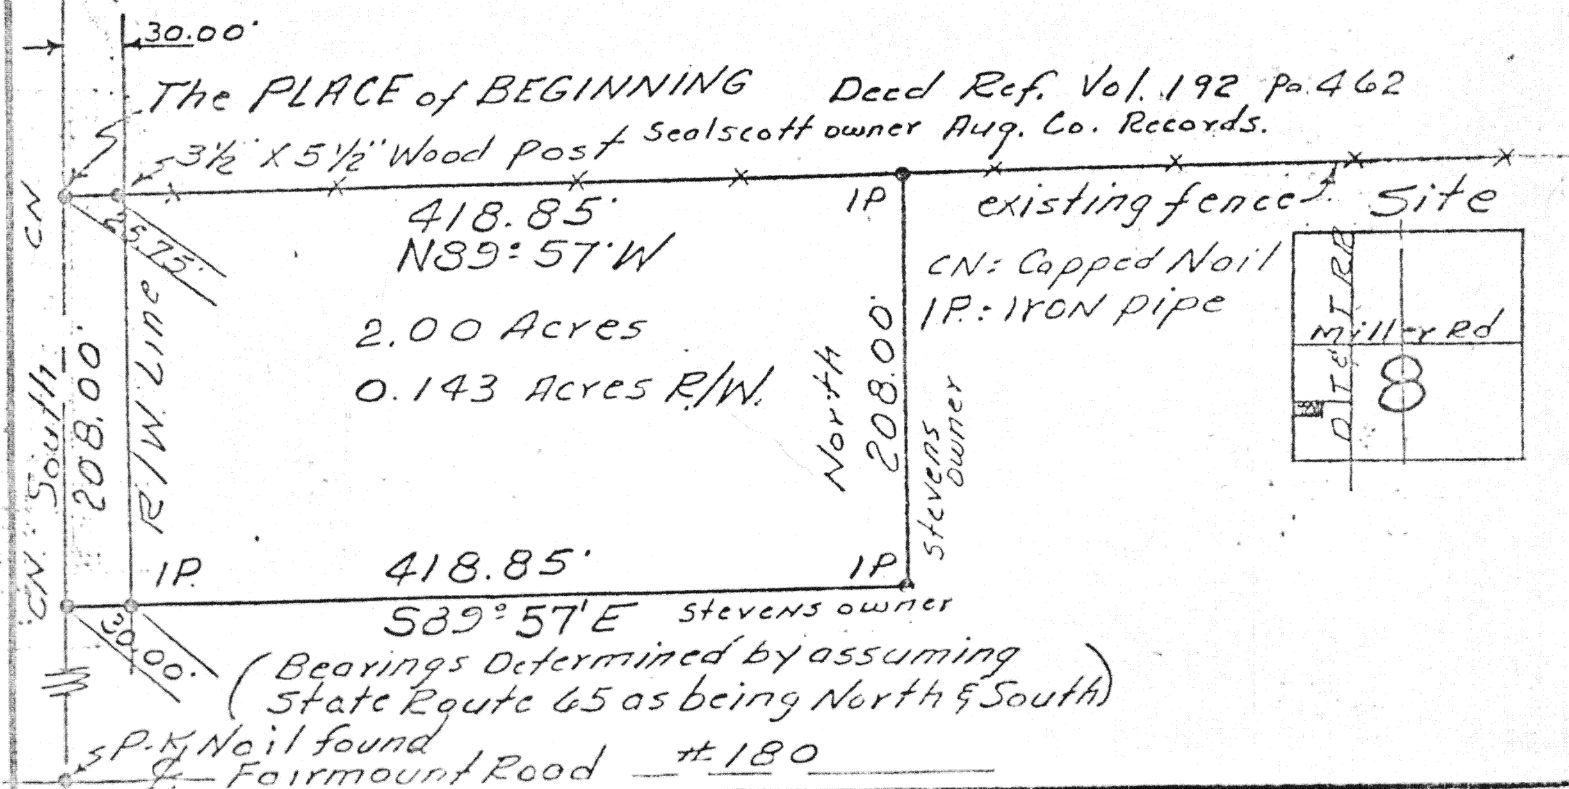 30.00'
The PLACE of BEGINNING Deed Ref. Vol. 192 Pa. 462
3½" X 5½" Wood Post Sealscott owner Aug. Co. Records.
CN
25.75'
418.85'
N89°57'W
IP
existing fence
Site
CN: Capped Nail
IP.: Iron pipe
2.00 Acres
0.143 Acres R/W.
South
208.00'
R/W. Line
North
208.00'
Stevens
owner
DT&I RR
Miller Rd
8
CN.
IP.
418.85'
IP
S89°57'E Stevens owner
30.00'
(Bearings Determined by assuming
State Route 65 as being North & South)
P.K. Nail found
℄ Fairmount Road #180